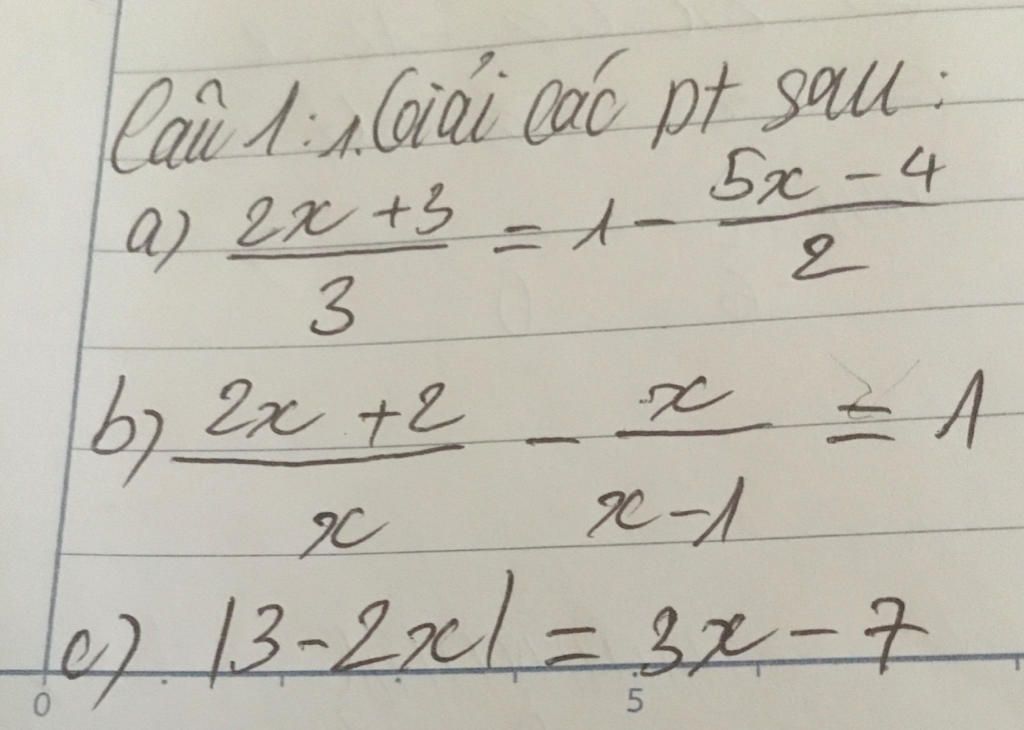 Câu 1: 1. Giải các pt sau:
a) (2x + 3)/3 = 1 - (5x - 4)/2
b) (2x + 2)/x - x/(x - 1) = 1
c) |3 - 2x| = 3x - 7
0 5